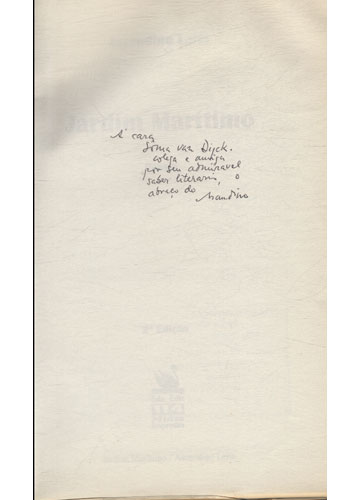 Jardim Marítimo
À cara
Sônia van Dijck.
colega e amiga
por seu admirável
saber literário, o
abraço do
2ª Edição